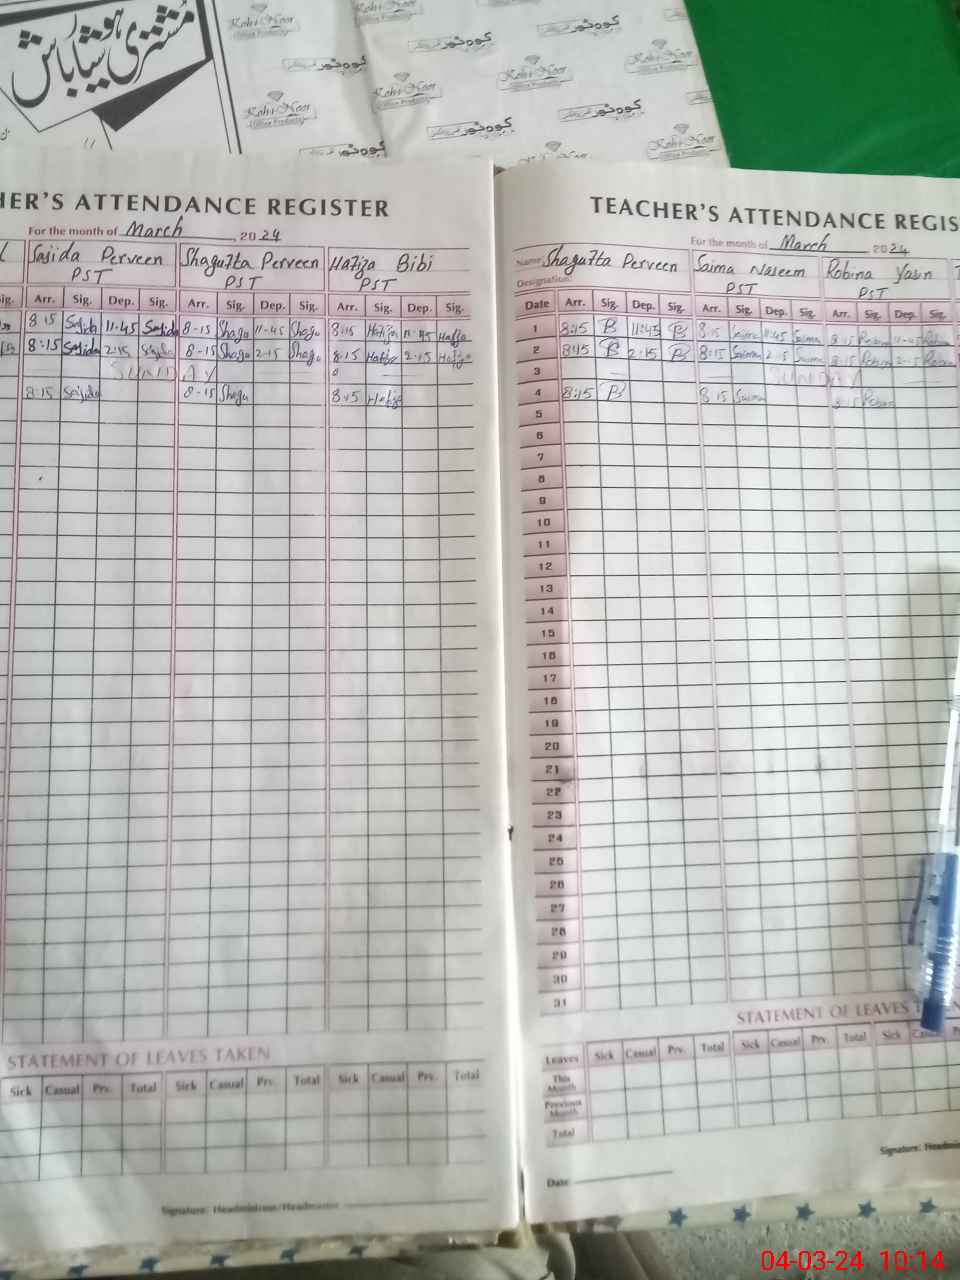 مشتری ہوشیار باش
Koh-i-Noor
Office Products
کوہ نور
HER'S ATTENDANCE REGISTER
For the month of March, 2024
Sajida Perveen Shagufta Perveen Hafiza Bibi
PST PST PST
Sig. Arr. Sig. Dep. Sig. Arr. Sig. Dep. Sig. Arr. Sig. Dep. Sig.
8:15 Sajida 11:45 Sajida 8-15 Shagu 11-45 Shagu 8:15 Hafiza 11:45 Hafiza
8:15 Sajida 2:15 Sajida 8-15 Shagu 2-15 Shagu 8:15 Hafiza 2:15 Hafiza
SUNDAY
8:15 Sajida 8-15 Shagu 8:15 Hafiza
STATEMENT OF LEAVES TAKEN
Sick Casual Prv. Total Sick Casual Prv. Total Sick Casual Prv. Total
Signature: Headmistress/Headmaster
TEACHER'S ATTENDANCE REGIS
For the month of March 2024
Name Shagufta Perveen Saima Naseem Robina Yasin
Designation PST PST
Date Arr. Sig. Dep. Sig. Arr. Sig. Dep. Sig. Arr. Sig. Dep. Sig.
1 8:15 B 11:45 B 8:15 Saima 11:45 Saima 8:15 Robina 11-45 Robina
2 8:15 B 2:15 B 8:15 Saima 2:15 Saima 8:15 Robina 2-15 Robina
3 SUNDAY
4 8:15 B 8:15 Saima 8:15 Robina
5
6
7
8
9
10
11
12
13
14
15
16
17
18
19
20
21
22
23
24
25
26
27
28
29
30
31
STATEMENT OF LEAVES
Leaves Sick Casual Prv. Total Sick Casual Prv. Total Sick
This Month
Previous Month
Total
Signature: Headmi
Date
04-03-24 10:14